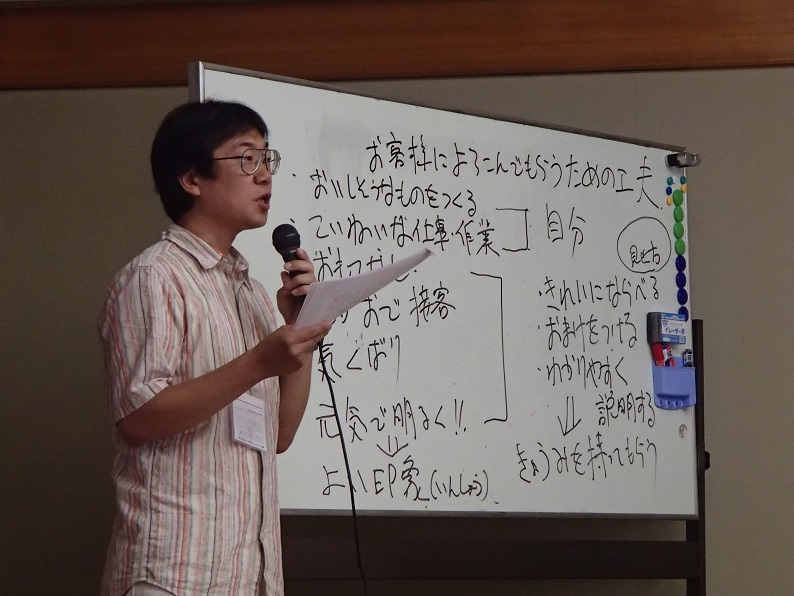 お客様によろこんでもらうための工夫
・おいしそうなものをつくる
・ていねいな仕事・作業
自分
おもてなし
おで接客
気くばり
元気で明るく!!
よい印象(いんしょう)
・きれいにならべる
・おまけをつける
・わかりやすく
説明する
きょうみを持ってもらう